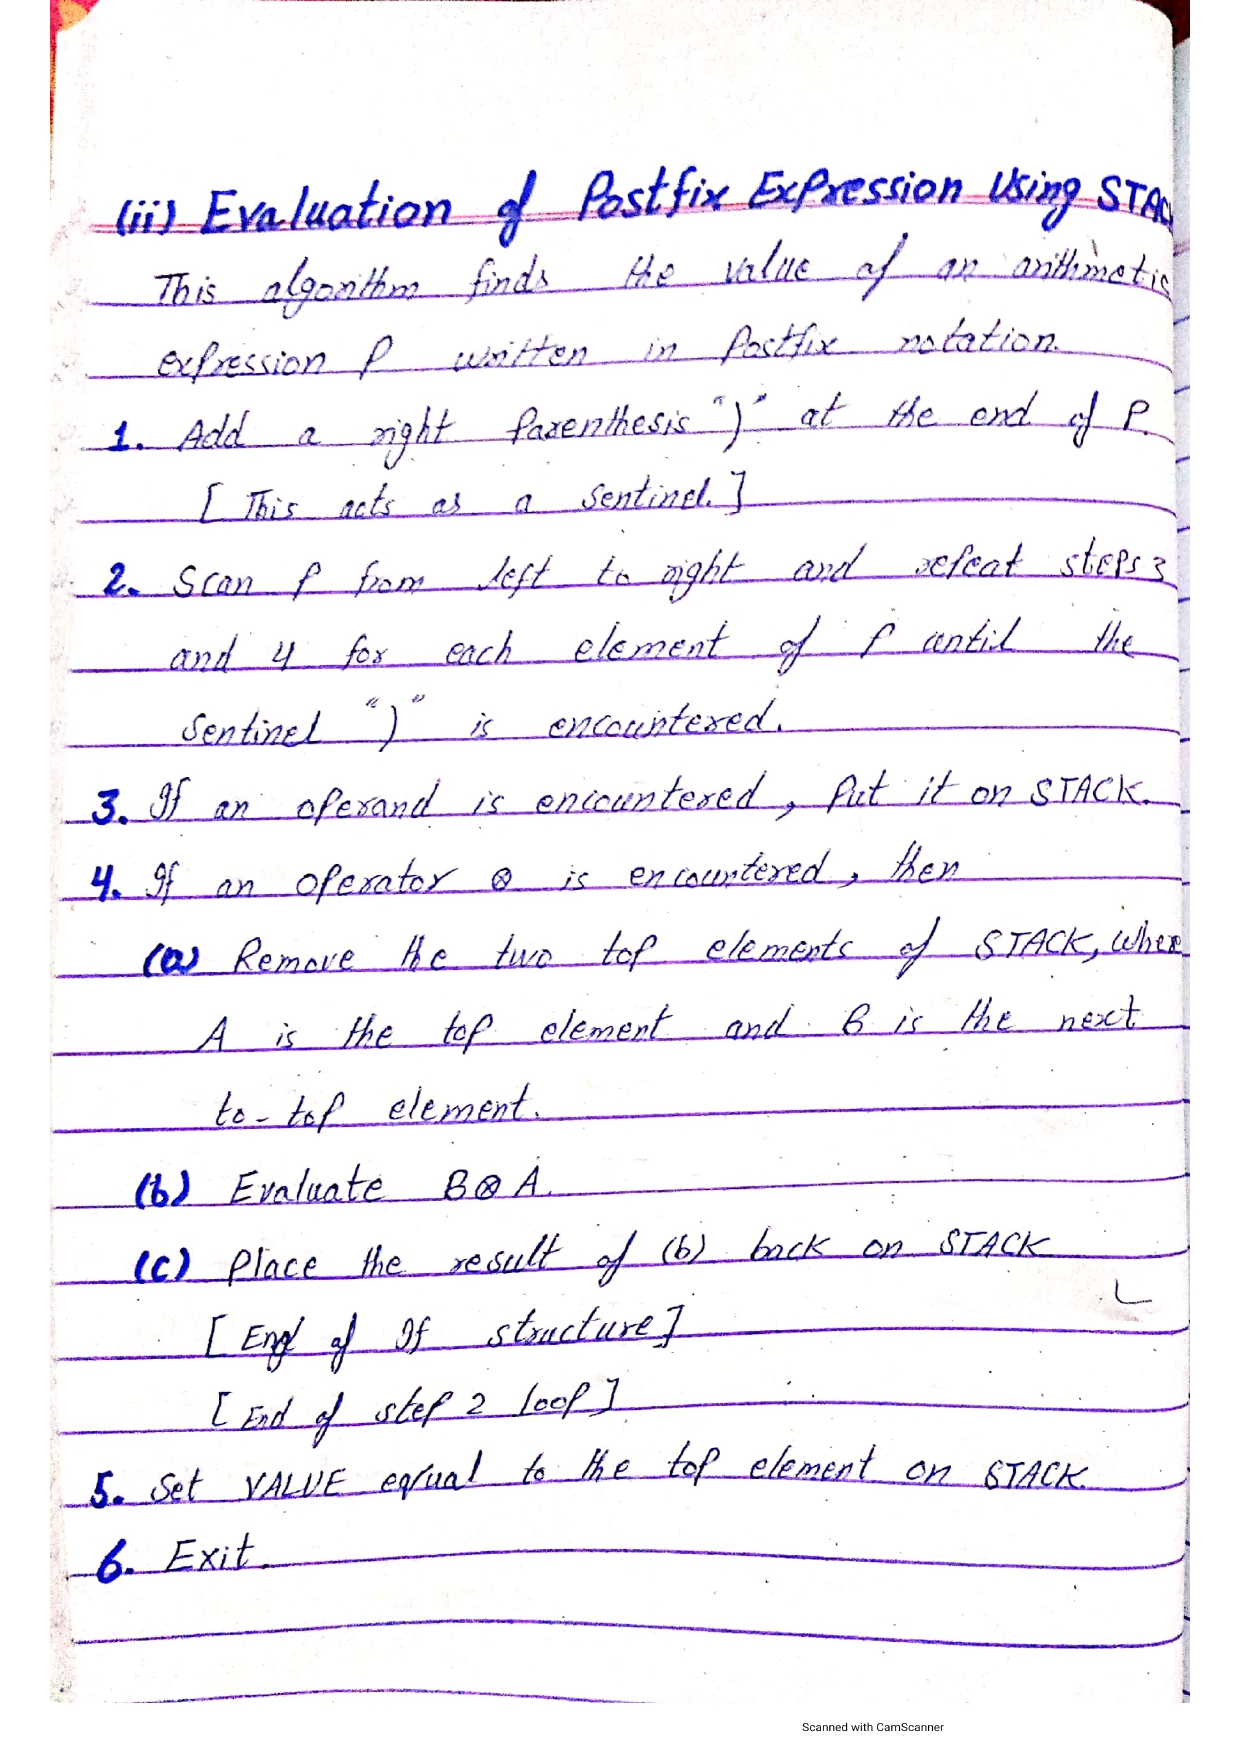 (ii) Evaluation of Postfix Expression Using STACK
This algorithm finds the value of an arithmetic
expression P written in Postfix notation.
1. Add a right parenthesis ")" at the end of P.
[ This acts as a sentinel. ]
2. Scan P from left to right and repeat steps 3
and 4 for each element of P until the
sentinel ")" is encountered.
3. If an operand is encountered, Put it on STACK.
4. If an operator ⊗ is encountered, then
(a) Remove the two top elements of STACK, where
A is the top element and B is the next
to-top element.
(b) Evaluate B⊗A.
(c) Place the result of (b) back on STACK
[ End of If structure ]
[ End of step 2 loop ]
5. Set VALUE equal to the top element on STACK.
6. Exit.
Scanned with CamScanner